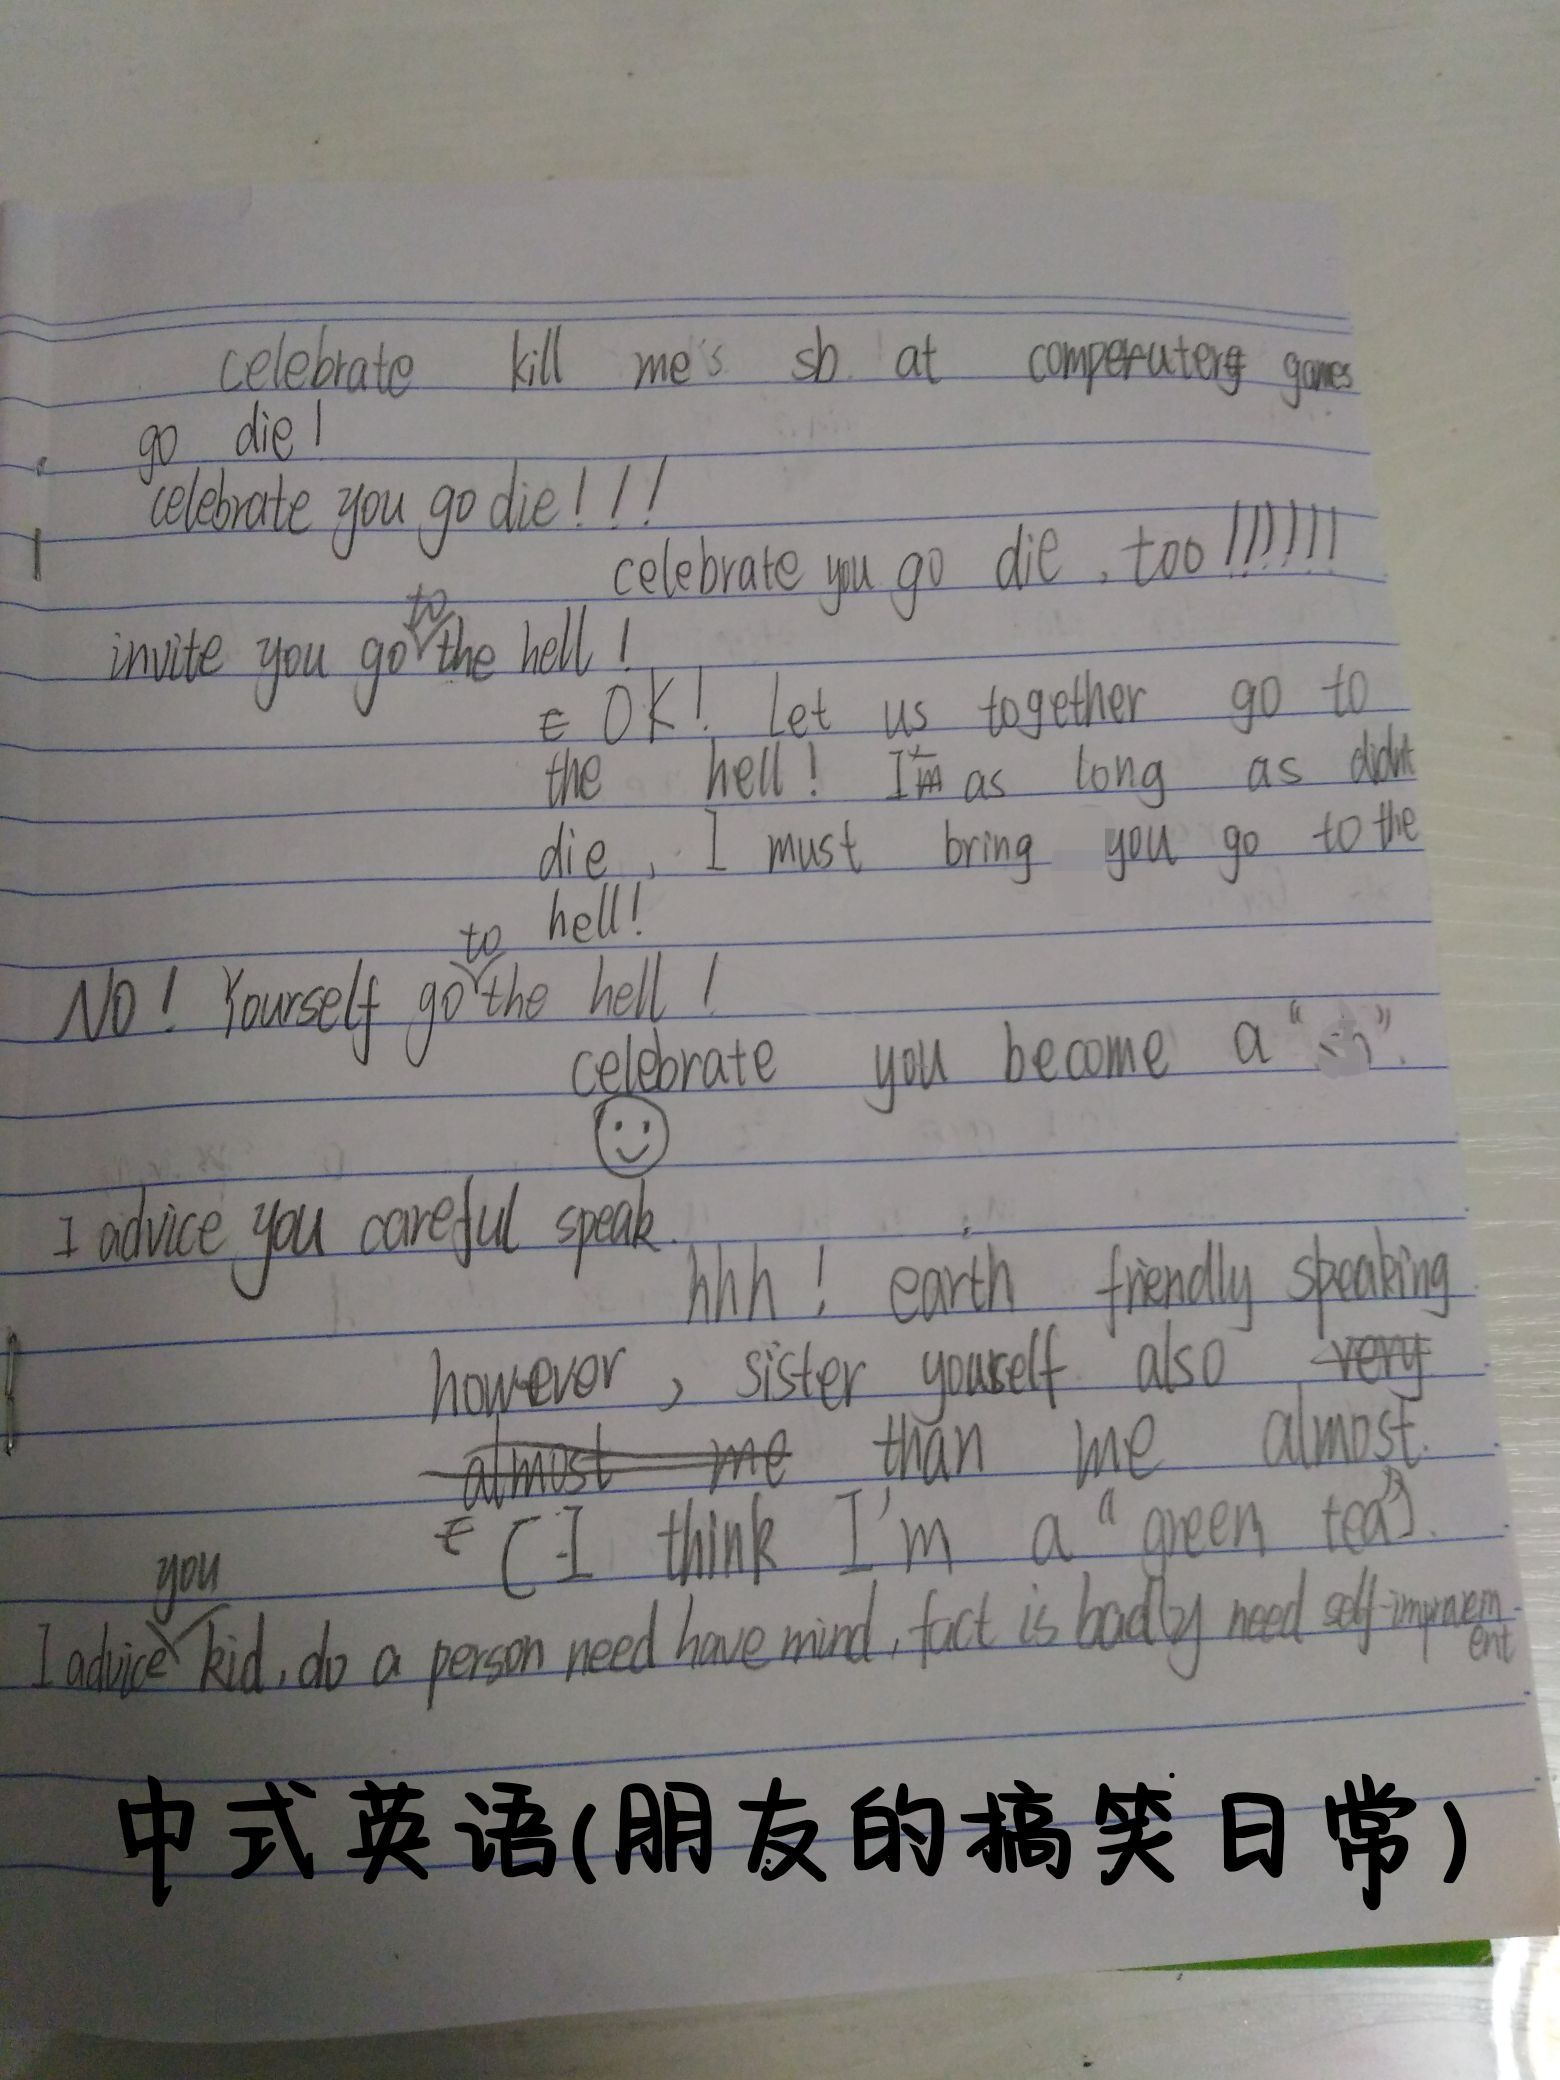 celebrate kill me's sb at computer games
go die!
celebrate you go die!!!
celebrate you go die, too!!!!!!
invite you go to the hell!
OK! Let us together go to
the hell! I as long as didn't
die, I must bring you go to the
hell!
NO! Yourself go to the hell!
celebrate you become a " ".
I advice you careful speak.
hhh! earth friendly speaking
however, sister yourself also very
almost me than me almost.
(I think I'm a "green tea").
I advice you kid, do a person need have mind, fact is badly need self-improvem-
ent
中式英语(朋友的搞笑日常)